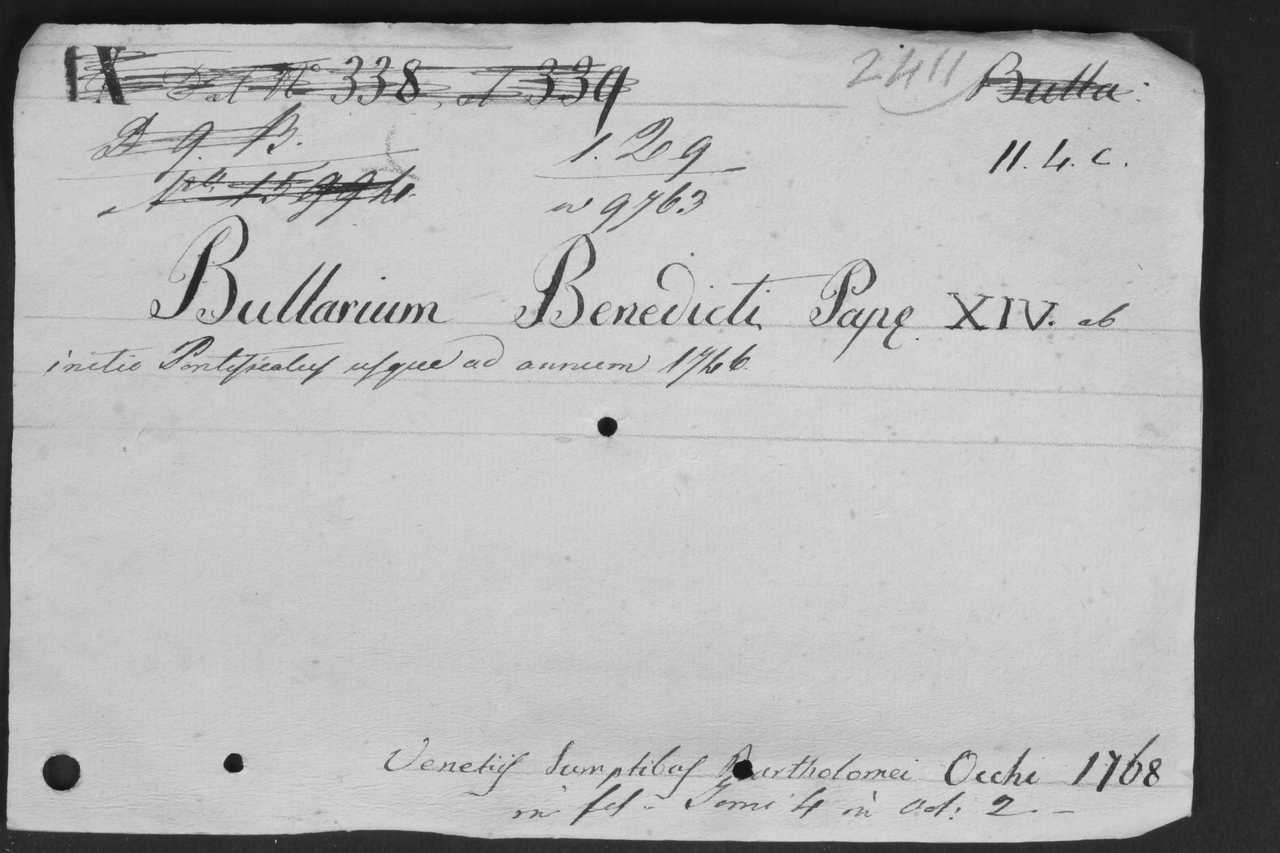 IX Dat Nº 338, et 339 2411 Bulla
D 9. B. 1. 2 9 11. 4. C.
15994 9763
Bullarium Benedicti Papę XIV. ab
initio Pontificatus usque ad annum 1746.
Venetijs Sumptibus Bartholomei Occhi 1768
in fol - Tomi 4 in Vol: 2 -